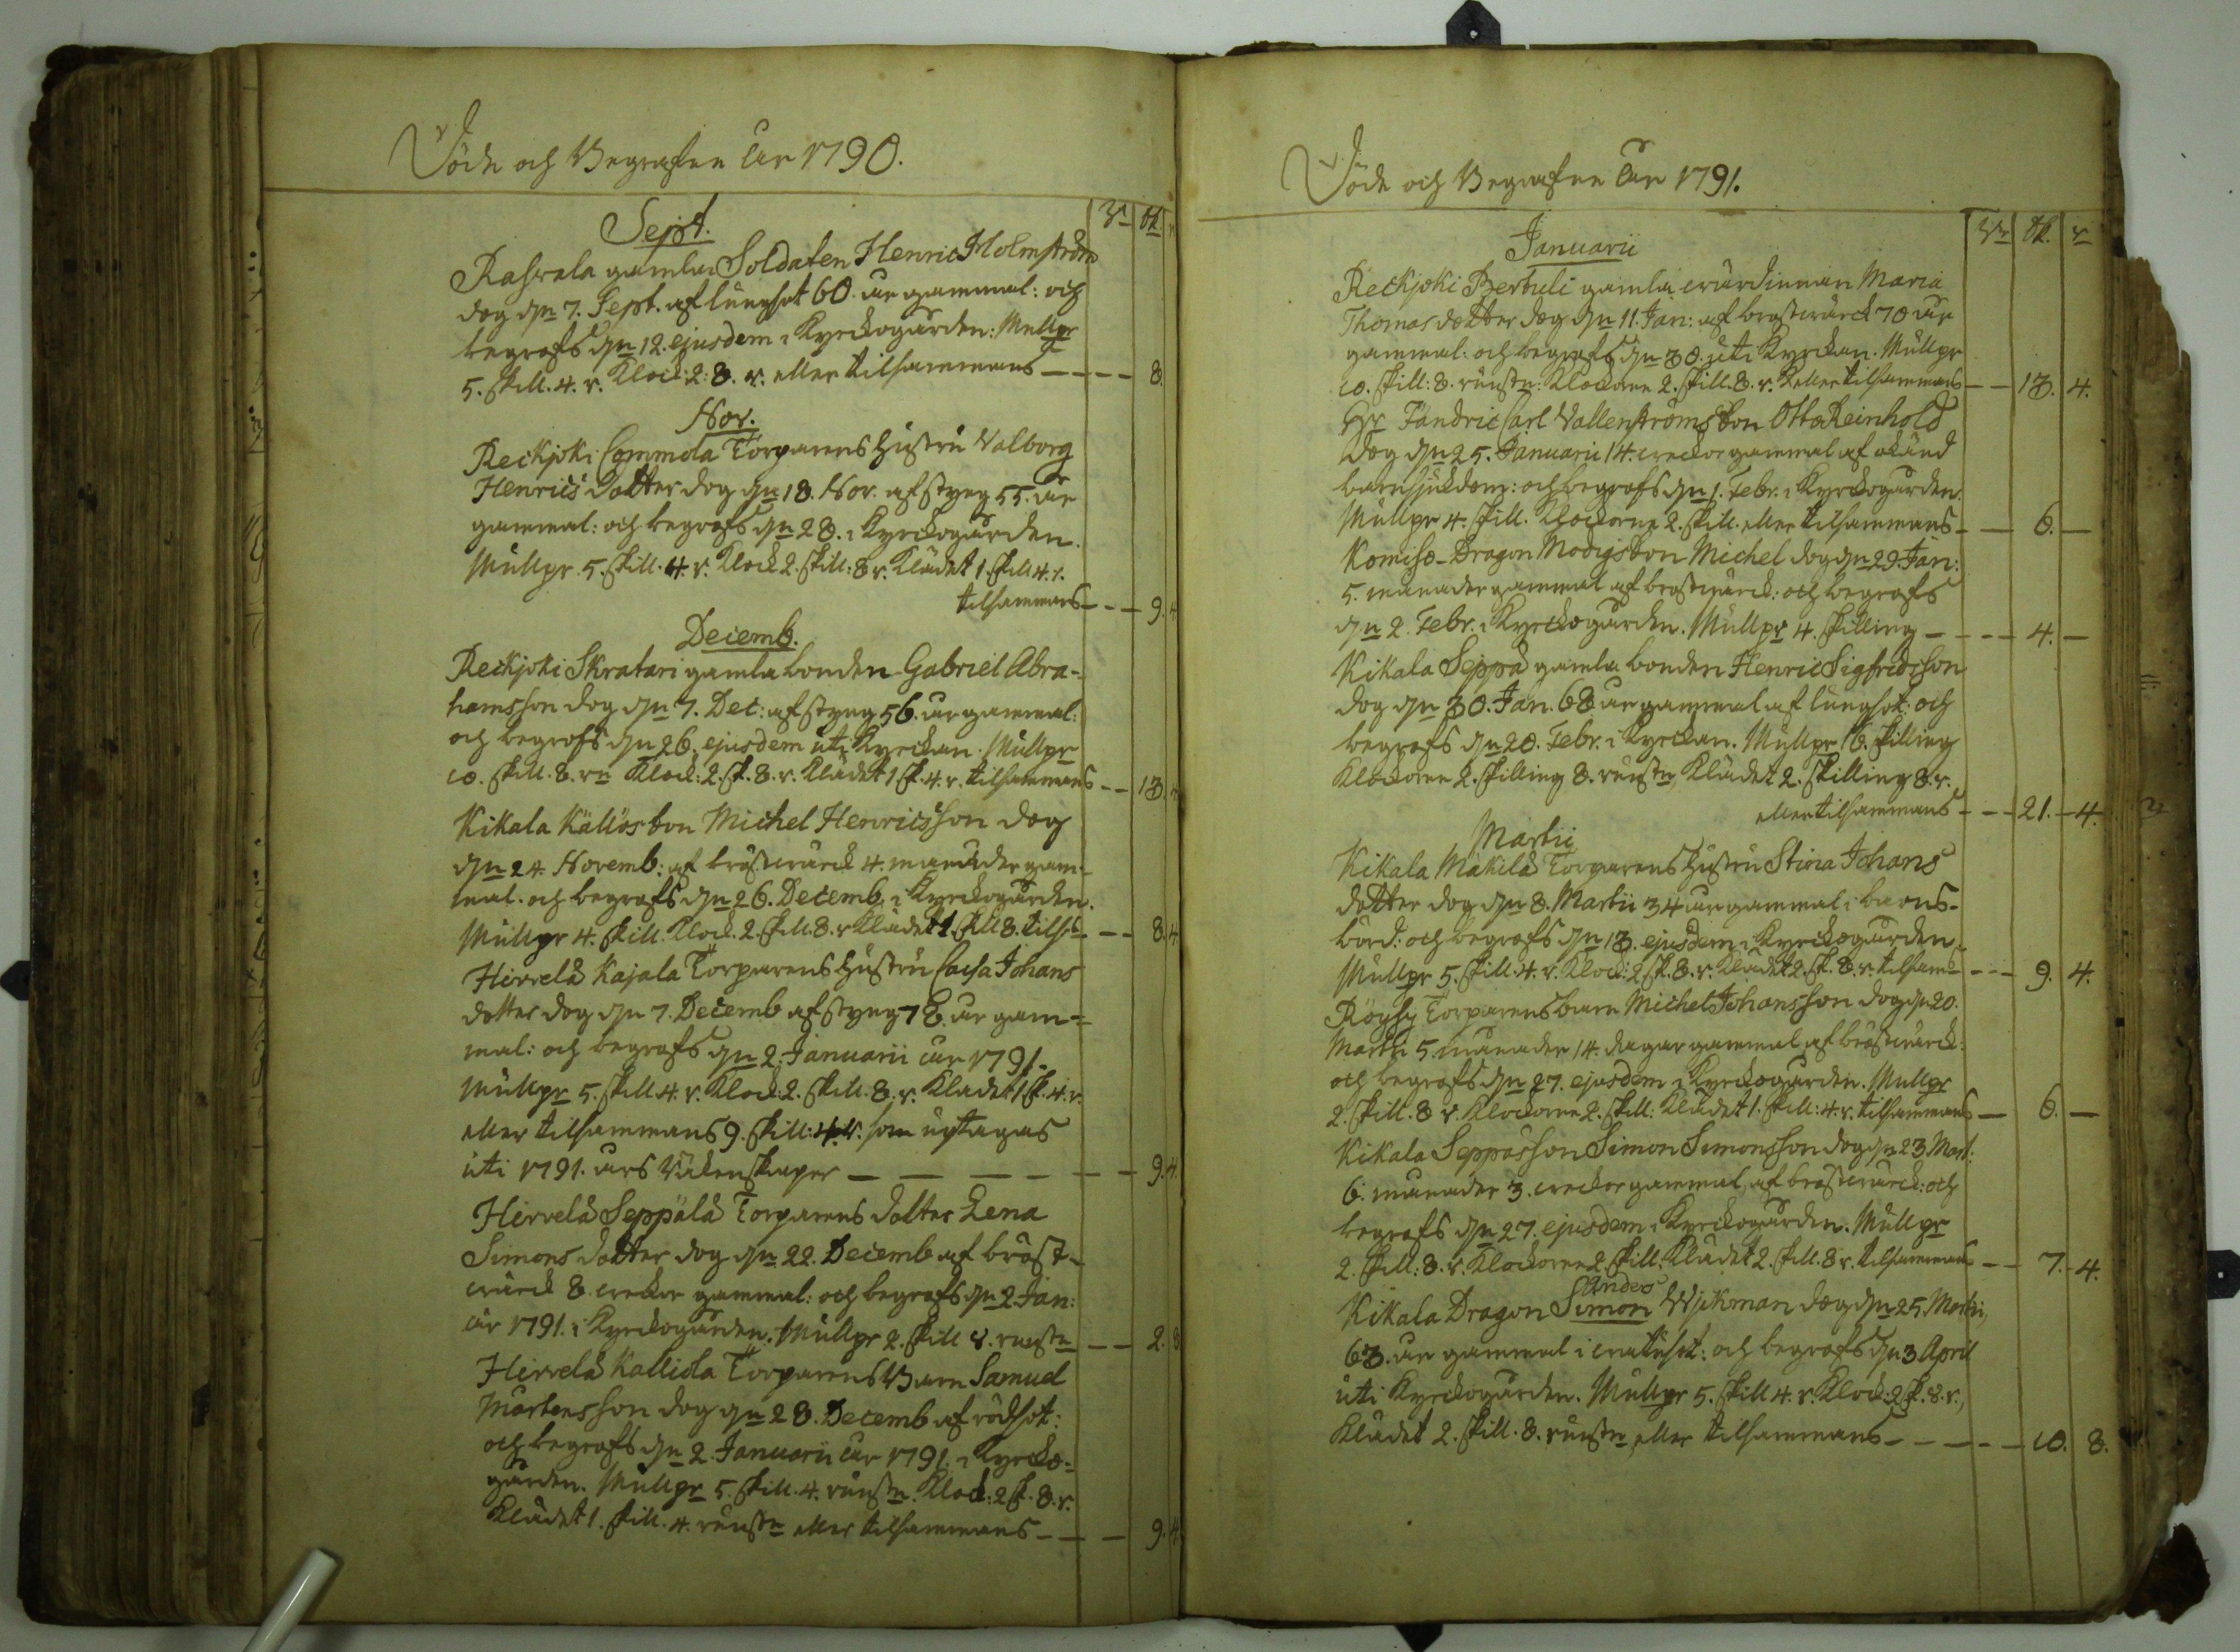 Döde och Begrafne År 1790.
Rr sk. r
Sept.
Rahvala gamla Soldaten Henric Holmström
dog den 7. Sept. af lungsot 60. år gammal: och
begrofs den 12. ejusdem i Kyrckogården: Mullpr
5. skill. 4. r. Klock: 2: 8. r. eller tilsammans - - - - 8.
Nov.
Reckjoki Commola Torparens hustru Valborg
Henrics dotter dog den 18. Nov. af styng 55. år
gammal: och begrofs den 28. i Kyrckogården.
Mullpr. 5. skill. 4. r. Klock 2. skill: 8 r. Klädet 1. skill 4. r.
tilsammans - - - 9. 4
Decemb.
Reckjoki Skratari gamla bonden Gabriel Abra-
hamsson dog den 7. Dec: af styng 56. år gammal:
och begrofs den 26. ejusdem uti Kyrckan. Mullpr
10. skill. 8. rn Klock: 2. sk. 8. r. Klädet 1 sk. 4. r. tilsammans - - 13. 4
Kikala Källös son Michel Henricsson dog
den 24. Novemb: af bröstvärck 4. månader gam-
mal. och begrofs den 26. Decemb. i Kyrckogården.
Mullpr 4. skill. Klock. 2. skill. 8. r Klädet 1 skill 8. tils - - - 8. 4
Hirvelä Kajala Torparens hustru Caisa Johans
dotter dog den 7. Decemb af styng 78. år gam=
mal: och begrofs den 2. Januarii år 1791.
Mullpr 5. skill 4. r. Klock: 2. skill. 8. r. Klädet 1 sk. 4. r.
eller tilsammans 9. skill: 4. r. som uptagas
uti 1791. års Räkenskaper - - - - - 9. 4
Hirvelä Seppälä Torparens dotter Lena
Simons dotter dog den 22. Decemb af bröst-
värck 8. veckor gammal: och begrofs den 2 Jan:
år 1791. i Kyrckogården. Mullpr 2. skill 8. runstn - - 2. 8
Hirvelä Kalliola Torparens Barn Samuel
Mårtensson dog den 28. Decemb af rödsot:
och begrofs den 2. Januarii år 1791. i Kyrcko=
gården. Mullpr 5. skill. 4. runstn. Klock: 2 sk. 8. r.
Klädet 1. skill. 4. runstn eller tilsammans - - - 9. 4
Döde och Begrafne År 1791.
Rr sk. r
Januarii
Reckjoki Bertuli gamla wärdinnan Maria
Thomas dotter dog den 11. Jan: af bröstvärck 70 år
gammal: och begrofs den 30. uti Kyrckan. Mullpr
10. skill: 8. runstn: Klockorne 2. skill. 8. r. eller tilsammans - - 13. 4.
Hr Fändric Carl Vallenströms son Otto Reinhold
dog den 25. Januarii 14. veckor gammal af okänd
barnsjukdom: och begrofs den 1. Febr. i Kyrckogården.
Mullpr 4. skill. Klockorne 2. skill. eller tilsammans - - 6. -
Komiso-Dragon Modigs son Michel dog den 29. Jan:
5. månader gammal af bröstvärck: och begrofs
den 2. Febr. i Kyrckogården. Mullpr 4. skilling - - - - 4. -
Kikala Seppä gamla bonden Henric Sigfridsson
dog den 30. Jan. 68 år gammal af lungsot: och
begrofs den 20. Febr. i Kyrckan. Mullpr 16. skilling
Klockorne 2. skilling 8. runstn, Klädet 2. skilling 8. r.
eller tilsammans - - - 21. - 4.
Martii
Kikala Mäkilä Torparens hustru Stina Johans
dotter dog den 8. Martii 34 år gammal i barns-
börd: och begrofs den 13. ejusdem i Kyrckogården.
Mullpr 5. skill. 4. r. Klock: 2 sk. 8. r. Klädet 2. sk. 8. r. tilsam - - - 9. 4.
Röyhy Torparens barn Michel Johansson dog den 20.
Martii 5. månader 14. dagar gammal af bröstvärck:
och begrofs den 27. ejusdem i Kyrckogården. Mullpr
2. skill. 8 r. Klockorne 2. skill: Klädet 1. skill: 4. r. tilsammans - 6. -
Kikala Seppäs son Simon Simonsson dog den 23 Mart:
6. månader 3. veckor gammal, af bröstvärck: och
begrofs den 27. ejusdem i Kyrckogården. Mullpr
2. skill: 8. r. Klockorne 2. skill: Klädet 2. skill. 8 r. tilsammans - - 7. - 4.
Anders
Kikala Dragon Simon Wikman dog den 25. Martii,
63. år gammal i vattusot: och begrofs den 3 April
uti Kyrckogården. Mullpr 5. skill 4. r. Klock: 2 sk. 8. r.,
Klädet 2. skill. 8. runstn, eller tilsammans - - - - - 10. 8.